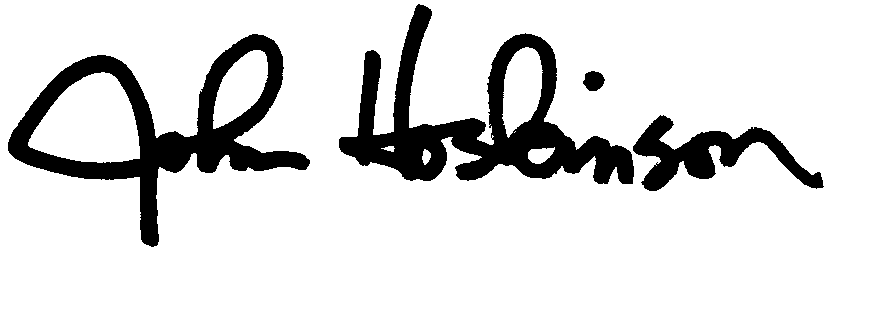 John Hoskinson